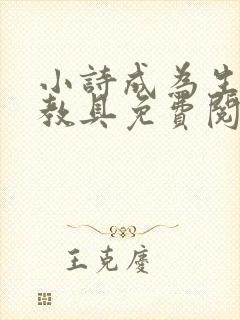 小詩成為生
教具免費閱
王克慶